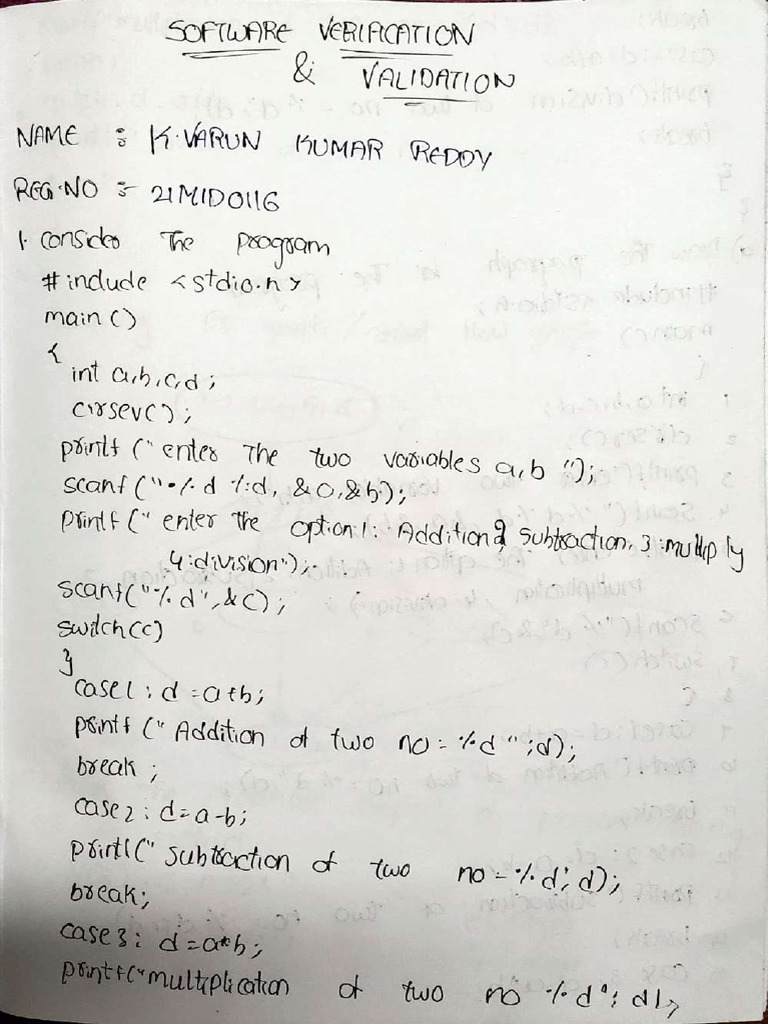 SOFTWARE VERIFICATION
& VALIDATION
NAME : K.VARUN KUMAR REDDY
REG.NO :- 21MID0116
1. consider The program
#include <stdio.h>
main()
{
int a,b,c,d;
clrscr();
printf ("enter The two variables a,b ");
scanf ("%d %d, &a,&b);
printf ("enter the option 1: Addition 2 subtraction, 3:multiply
4:division");
scanf("%d",&c);
switch(c)
}
case1: d=a+b;
printf ("Addition of two no = %d";d);
break;
case2: d=a-b;
printf(" subtraction of two no = %d; d);
break;
case3: d=a*b;
printf("multiplication of two no %d"; d);